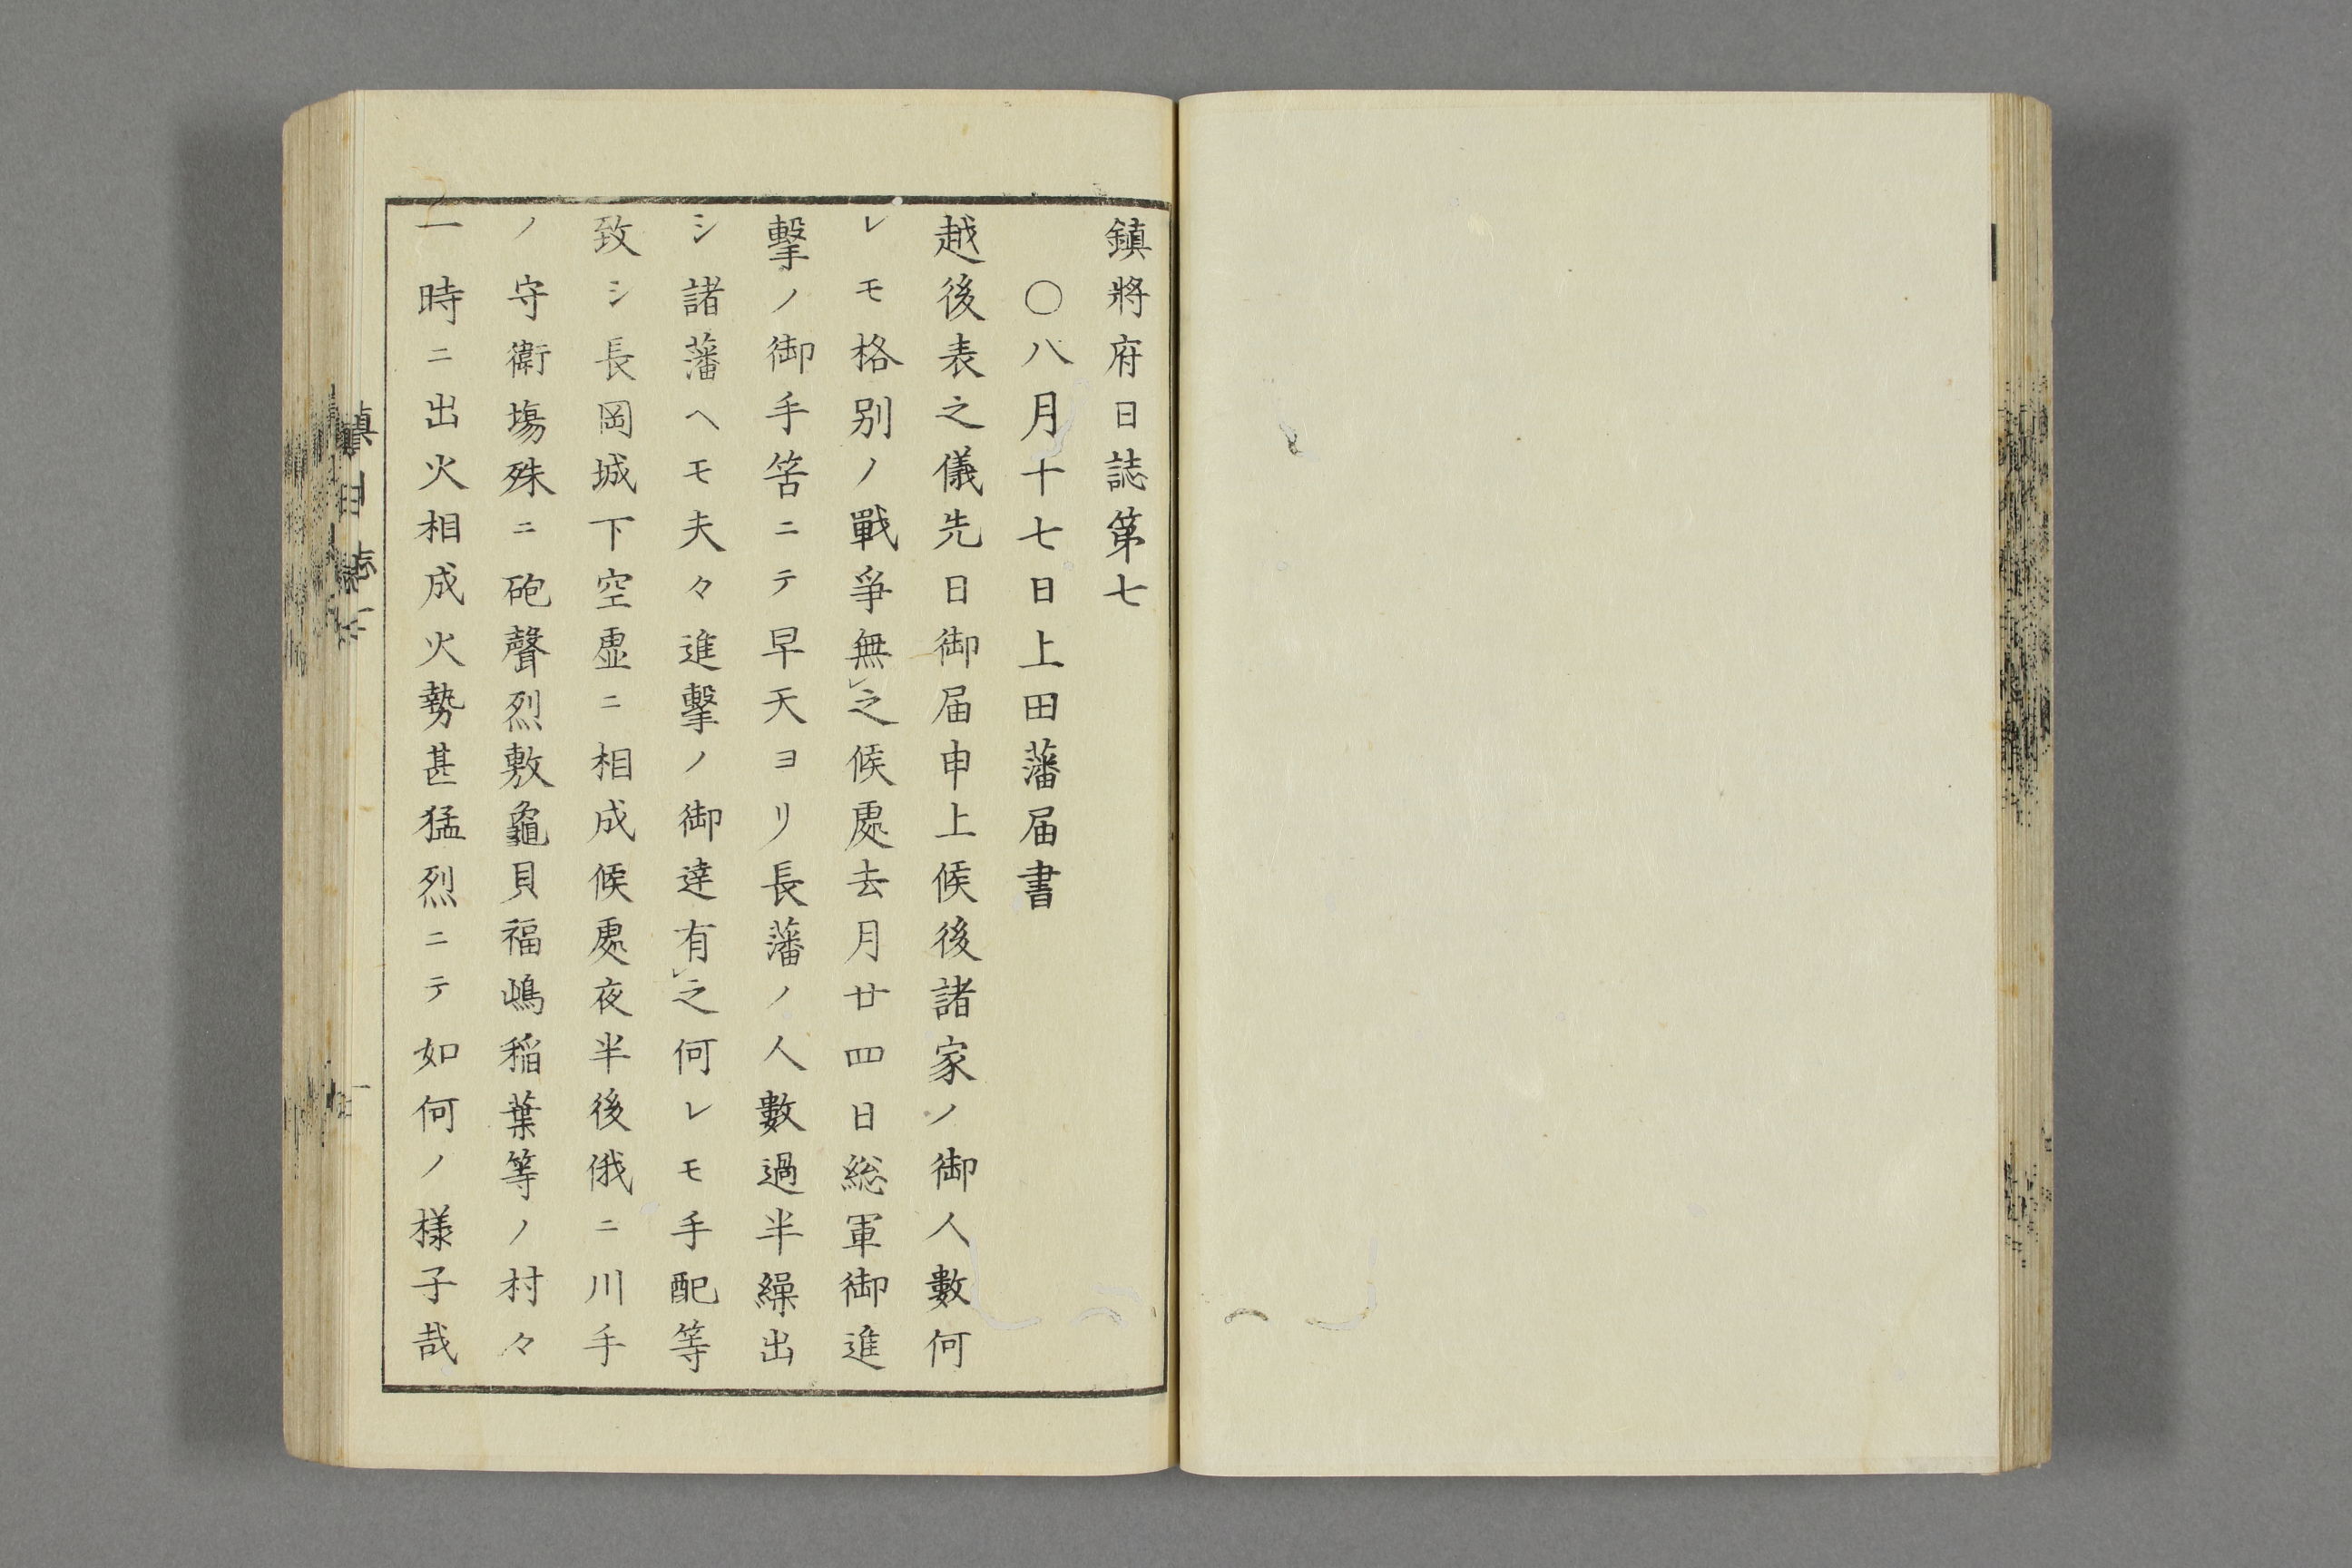 鎮將府日誌第七
〇八月十七日上田藩届書
越後表之儀先日御届申上候後諸家ノ御人數何
レモ格別ノ戰爭無㆑之候處去月廿四日総軍御進
擊ノ御手筈ニテ早天ヨリ長藩ノ人數過半繰出
シ諸藩ヘモ夫々進擊ノ御達有㆑之何レモ手配等
致シ長岡城下空虚ニ相成候處夜半後俄ニ川手
ノ守衛塲殊ニ砲聲烈敷龜貝福嶋稲葉等ノ村々
一時ニ出火相成火勢甚猛烈ニテ如何ノ様子哉